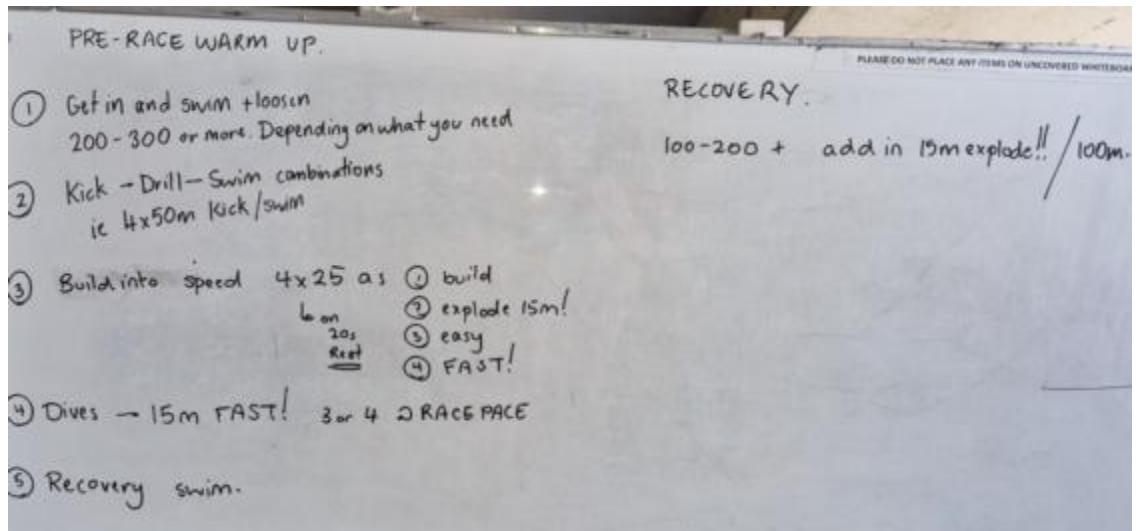 PRE-RACE WARM UP.
① Get in and swim + loosen
200-300 or more. Depending on what you need
② Kick - Drill - Swim combinations
ie 4x50m Kick/swim
③ Build into speed 4x25 as ① build
↳ on ② explode 15m!
20s ③ easy
Rest ④ FAST!
④ Dives → 15m FAST! 3 or 4 RACE PACE
⑤ Recovery swim.
PLEASE DO NOT PLACE ANY ITEMS ON UNCOVERED WHITEBOAR
RECOVERY.
100-200 + add in 15m explode!! / 100m.